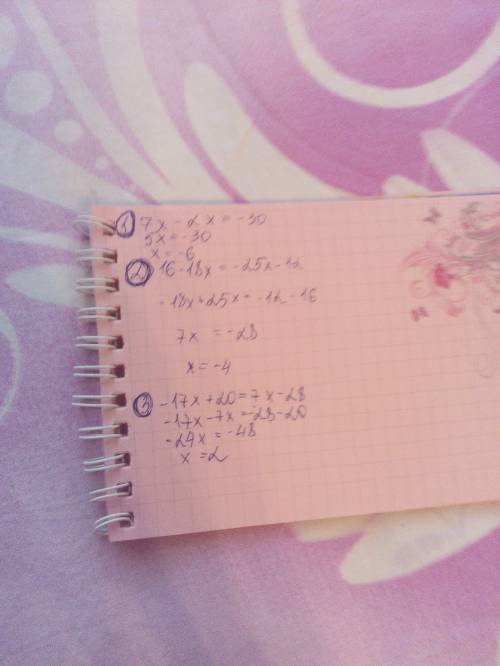 ① 7x - 2x = -30
5x = -30
x = -6
② 16 - 18x = -25x - 12
-18x + 25x = -12 - 16
7x = -28
x = -4
③ -17x + 20 = 7x - 28
-17x - 7x = -28 - 20
-24x = -48
x = 2